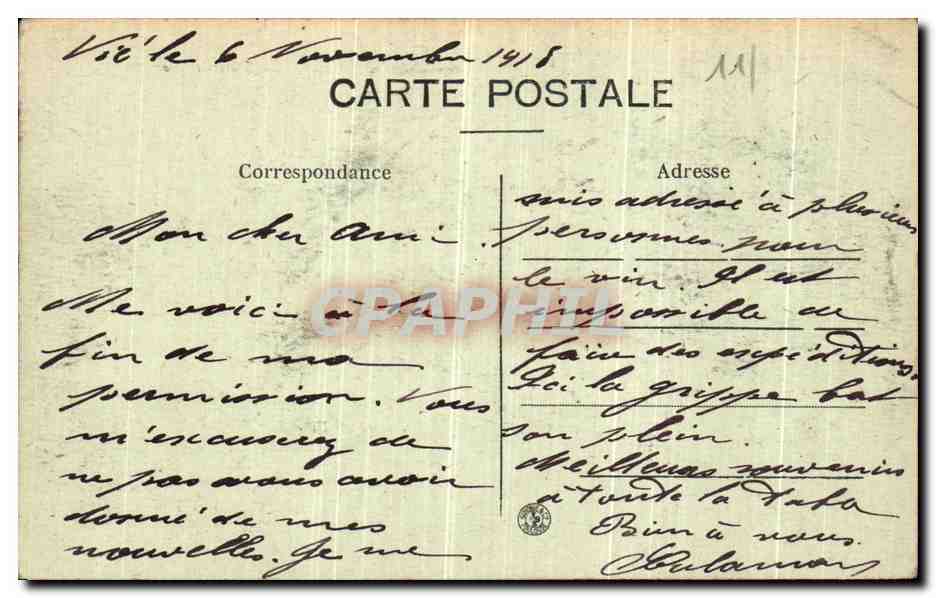 Vic le 6 Novembre 1918
11/
CARTE POSTALE
Correspondance
Mon cher Ami.
Me voici à la
fin de ma
permission. Vous
m'excuserez de
ne pas vous avoir
donné de mes
nouvelles. Je me
Adresse
suis adressé à plusieurs
personnes pour
le vin. Il est
impossible de
faire des expéditions.
Ici la grippe bat
son plein.
Meilleurs souvenirs
à toute la
Bien à vous
CPAPHIL